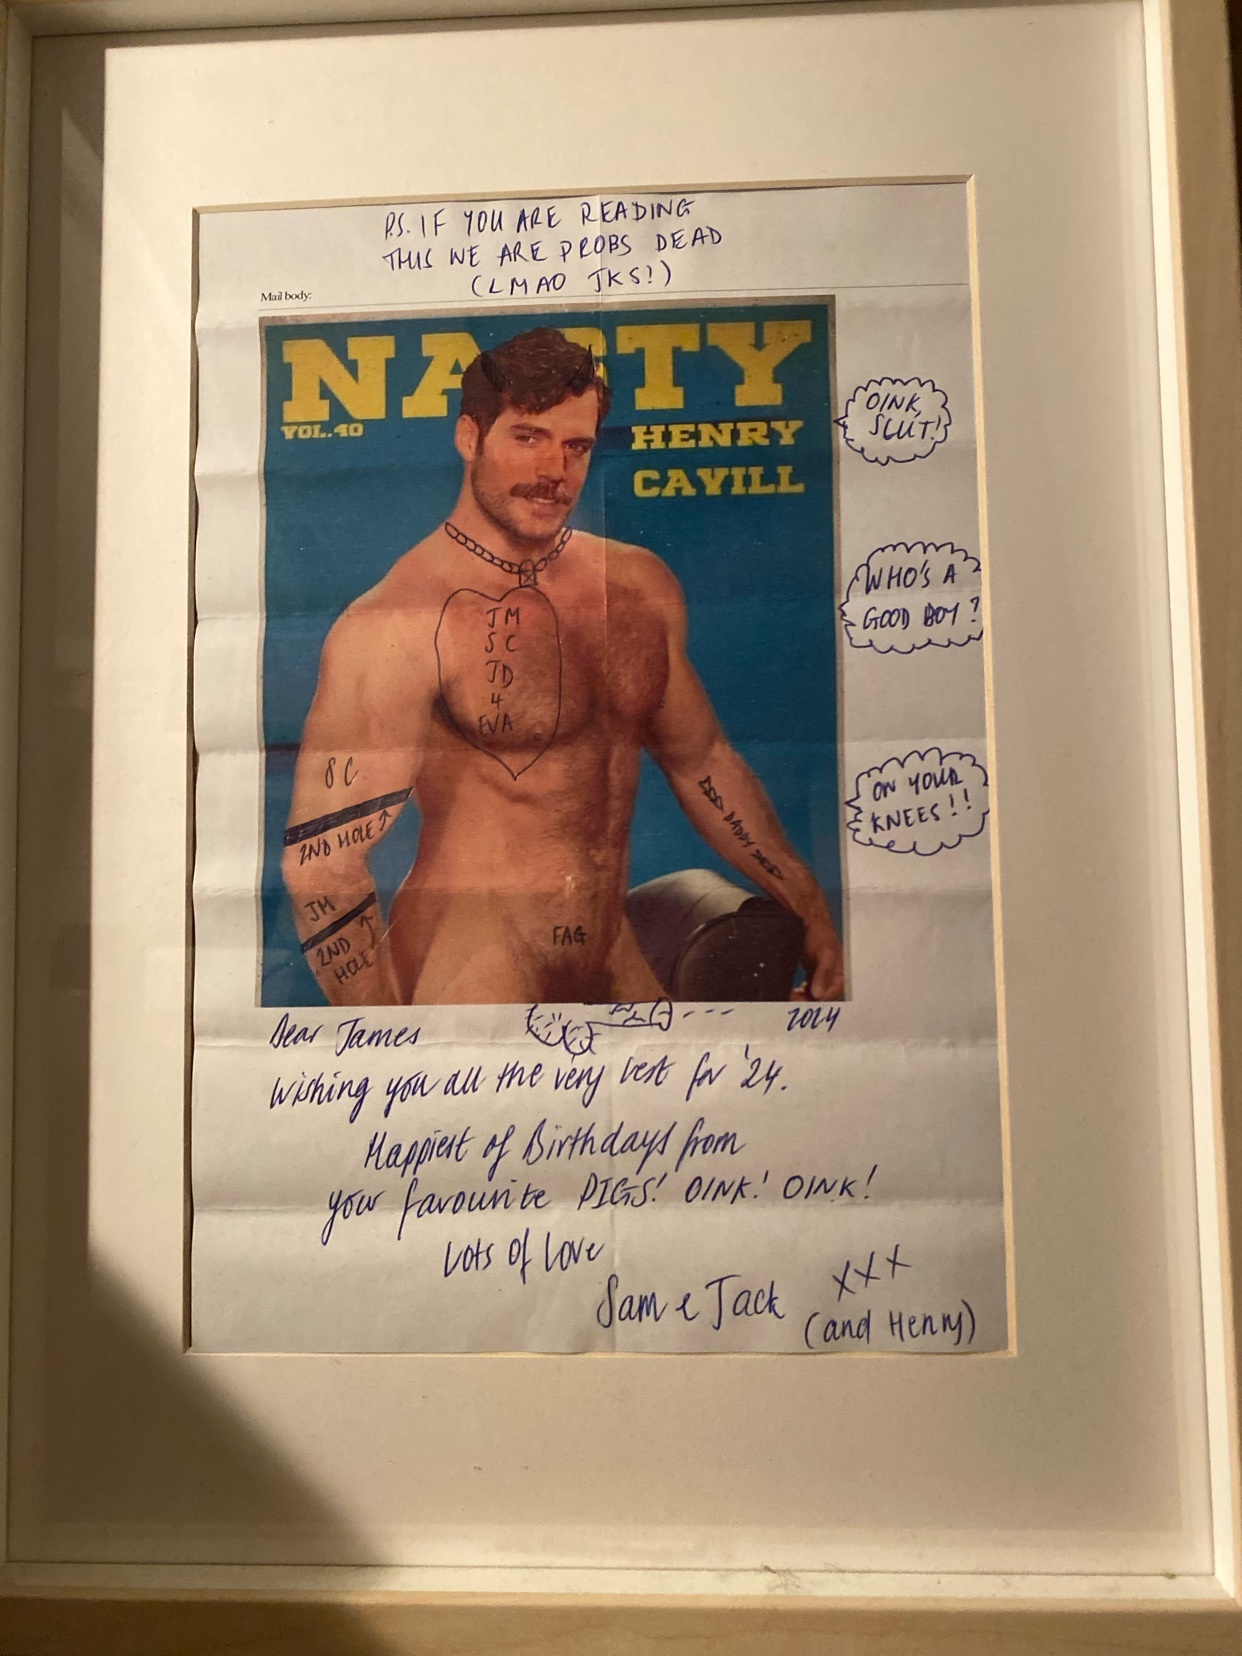 P.S. IF YOU ARE READING
THIS WE ARE PROBS DEAD
(LMAO JKS!)
Mail body:
NASTY
VOL.40
HENRY
CAVILL
OINK,
SLUT!
WHO'S A
GOOD BOY?
ON YOUR
KNEES!!
JM
SC
JD
4
EVA
SC
2ND HOLE
JM
2ND
HOLE
DADDY
FAG
Dear James
2024
Wishing you all the very best for '24.
Happiest of Birthdays from
your favourite PIGS! OINK! OINK!
Lots of love
Sam & Jack xxx
(and Henry)